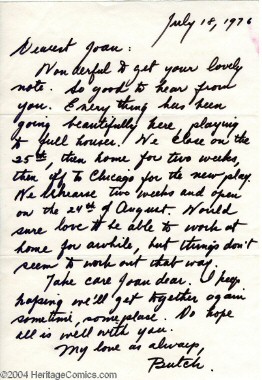 July 18, 1976
Dearest Joan:
Wonderful to get your lovely
note. So good to hear from
you. Everything has been
going beautifully here, playing
to full houses! We close on the
25th, then home for two weeks,
then off to Chicago for the new play.
We rehearse two weeks and open
on the 24th of August. Would
sure love to be able to work at
home for awhile, but things don't
seem to work out that way.
Take care Joan dear. I keep
hoping we'll get together again
sometime, someplace. Do hope
all is well with you.
My love as always,
Butch.
©2004 HeritageComics.com